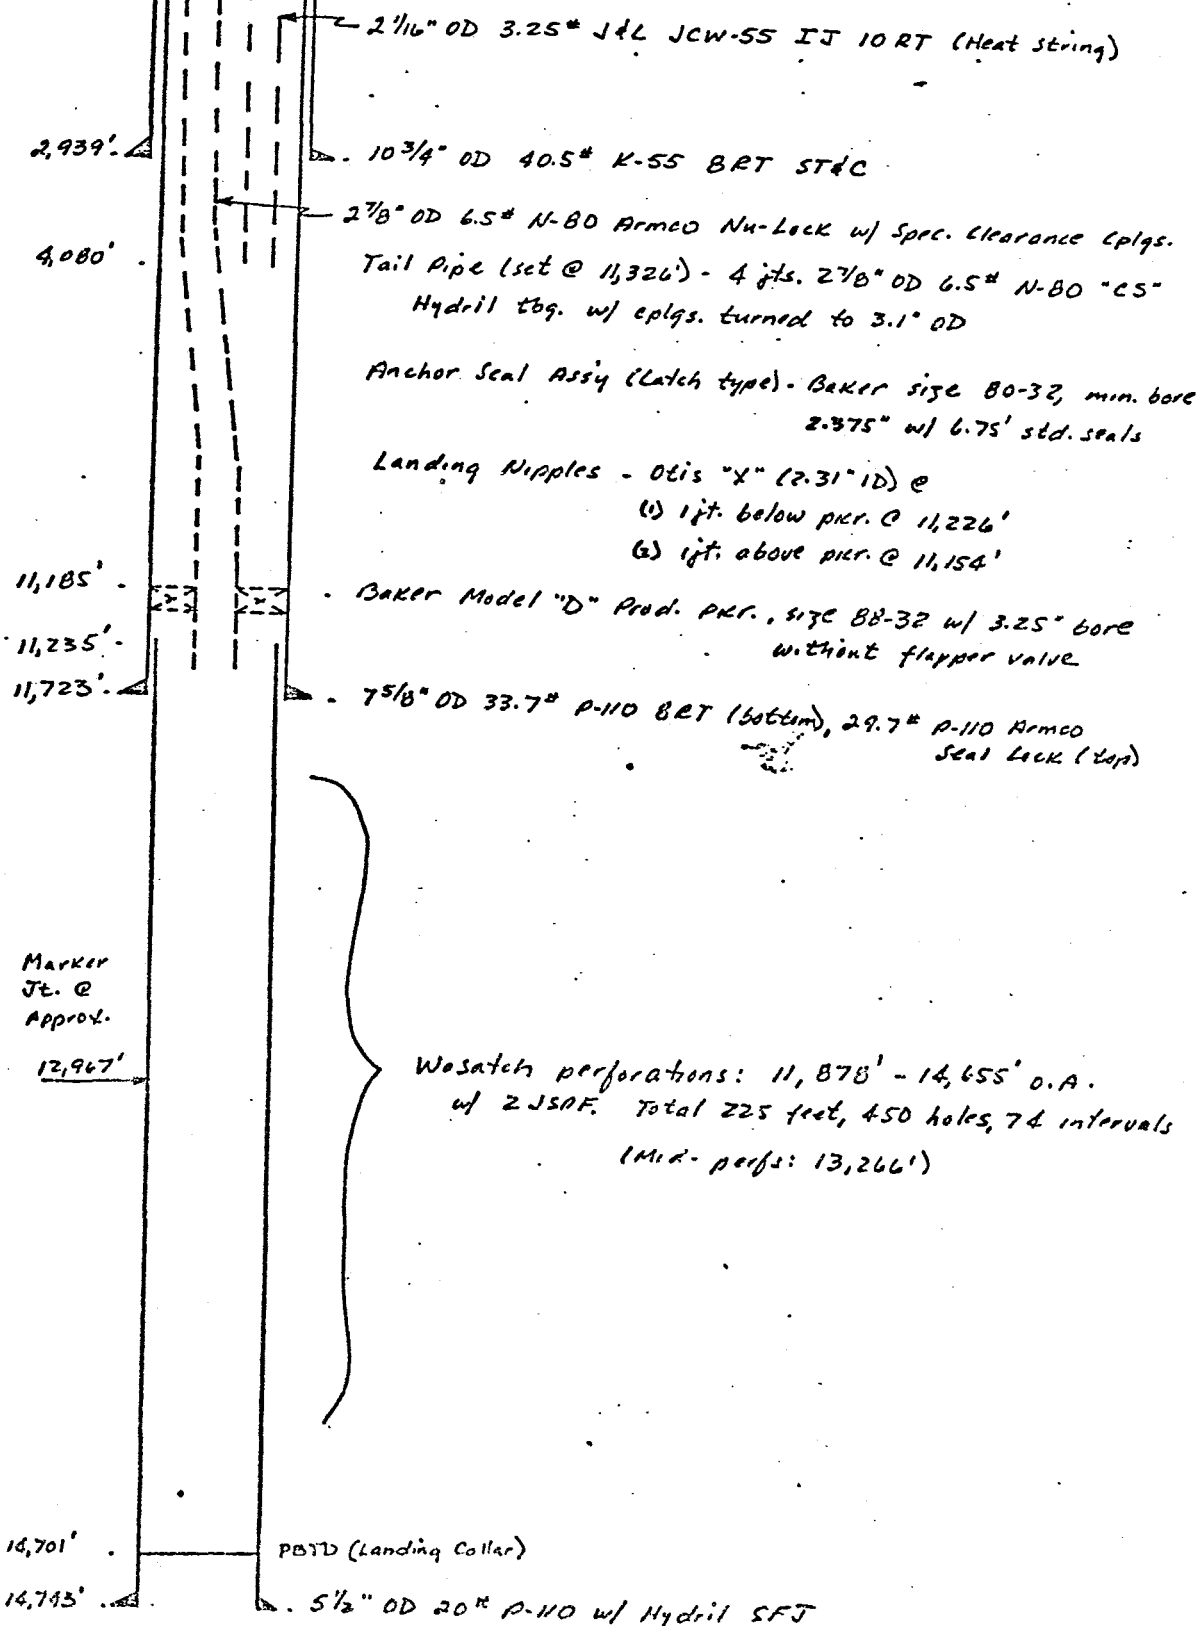 2 1/16" OD 3.25# J&L JCW-55 IJ 10 RT (Heat string)
2,939'
10 3/4" OD 40.5# K-55 8RT ST&C
2 7/8" OD 6.5# N-80 Armco Nu-Lock w/ Spec. Clearance Cplgs.
4,080'
Tail Pipe (set @ 11,326') - 4 jts. 2 7/8" OD 6.5# N-80 "CS"
Hydril tbg. w/ cplgs. turned to 3.1" OD
Anchor Seal Assy (Latch type) - Baker size 80-32, min. bore
2.375" w/ 6.75' std. seals
Landing Nipples - Otis "X" (2.31" ID) @
(1) 1 jt. below pkr. @ 11,226'
(2) 1 jt. above pkr. @ 11,154'
11,185'
Baker Model "D" Prod. pkr., size 88-32 w/ 3.25" bore
without flapper valve
11,235'
11,723'
7 5/8" OD 33.7# P-110 8RT (bottom), 29.7# P-110 Armco
Seal Lock (top)
Marker
Jt. @
Approx.
12,967'
Wasatch perforations: 11,878' - 14,655' O.A.
w/ 2 JSPF. Total 225 feet, 450 holes, 74 intervals
(Mid-perfs: 13,266')
14,701'
PBTD (Landing Collar)
14,743'
5 1/2" OD 20# P-110 w/ Hydril SFJ